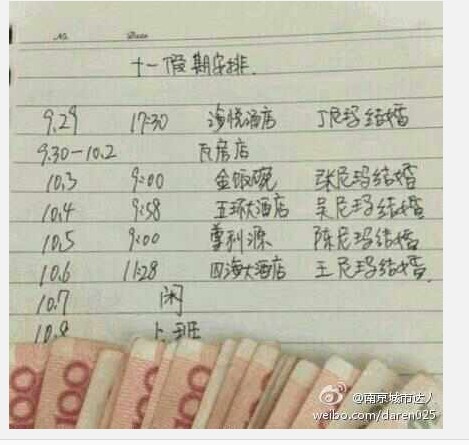 № Date
十一假期安排.
9.29 17:30 海悦酒店 丁尼玛结婚
9.30-10.2 瓦房店
10.3 9:00 金饭碗 张尼玛结婚
10.4 9:58 五环大酒店 吴尼玛结婚
10.5 9:00 利源 陈尼玛结婚
10.6 11:28 四海大酒店 王尼玛结婚.
10.7 闲
10.8 上班
100 100 100 00
@南京城市达人
weibo.com/daren025